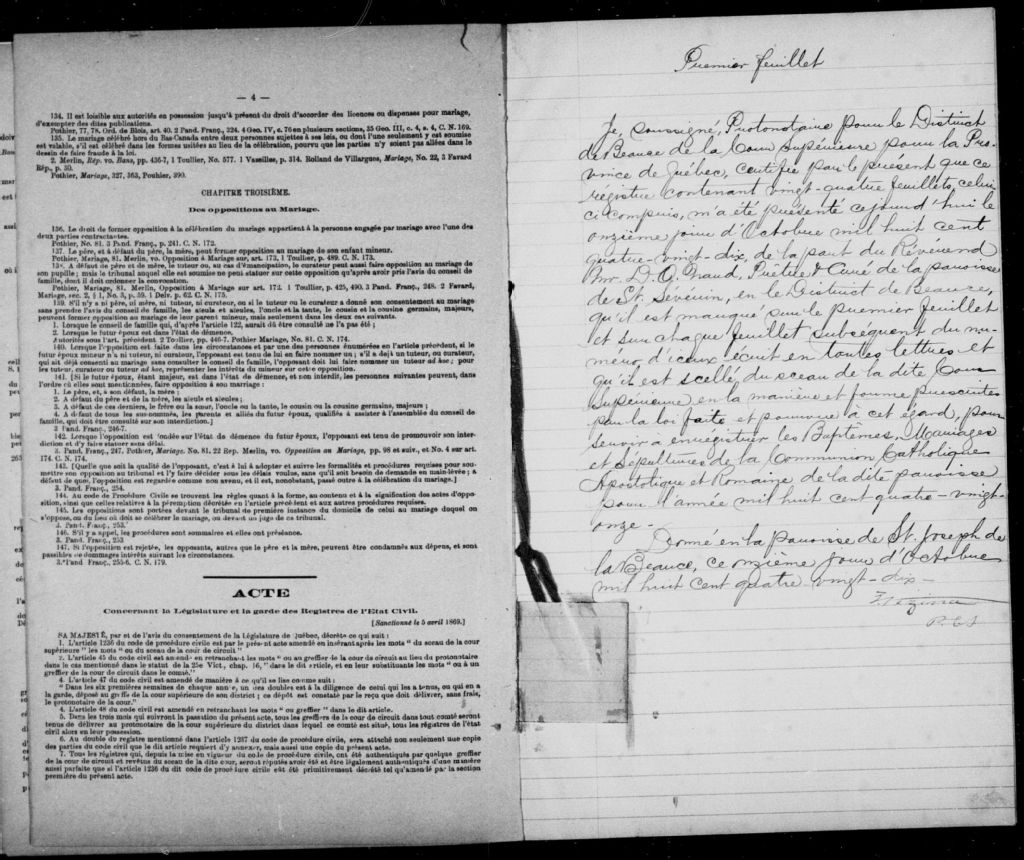 — 4 —
134. Il est loisible aux autorités en possession jusqu'à présent du droit d'accorder des licences ou dispenses pour mariage,
d'exempter des dites publications.
Pothier, 77, 78. Ord. de Blois, art. 40. 2 Pand. Franç., 224. 4 Geo. IV, c. 76 en plusieurs sections, 35 Geo. III, c. 4, s. 4, C. N. 169.
135. Le mariage célébré hors du Bas-Canada entre deux personnes sujettes à ses lois, ou dont l'une seulement y est soumise
est valable, s'il est célébré dans les formes usitées au lieu de la célébration, pourvu que les parties n'y soient pas allées dans le
dessein de faire fraude à la loi.
2. Merlin, Rép. vo. Bans, pp. 436-7, 1 Toullier, No. 577. 1 Vaseilles, p. 314. Rolland de Villargues, Mariage, No. 22, 3 Favard
Rép., p. 30.
Pothier, Mariage, 327, 363, Pouhier, 390.
CHAPITRE TROISIÈME.
Des oppositions au Mariage.
136. Le droit de former opposition à la célébration du mariage appartient à la personne engagée par mariage avec l'une des
deux parties contractantes.
Pothier, No. 81. 3 Pand. Franç., p. 241. C. N. 172.
137. Le père, et à défaut du père, la mère, peut former opposition au mariage de son enfant mineur.
Pothier, Mariage, 81. Merlin, vo. Opposition à Mariage sur, art. 173, 1 Toullier, p. 489. C. N. 173.
138. A défaut de père et de mère, le tuteur ou, au cas d'émancipation, le curateur peut aussi faire opposition au mariage de
son pupille; mais le tribunal auquel elle est soumise ne peut statuer sur cette opposition qu'après avoir pris l'avis du conseil de
famille, dont il doit ordonner la convocation.
Pothier, Mariage, 81. Merlin, Opposition à Mariage sur art. 172. 1 Toullier, p. 425, 490. 3 Pand. Franç., 248. 2 Favard,
Mariage, sec. 2, § 1, No. 3, p. 59. 1 Delr. p. 62. C. N. 175.
139. S'il n'y a ni père, ni mère, ni tuteur, ni curateur, ou si le tuteur ou le curateur a donné son consentement au mariage
sans prendre l'avis du conseil de famille, les aieuls et aieules, l'oncle et la tante, le cousin et la cousine germains, majeurs,
peuvent former opposition au mariage de leur parent mineur, mais seulement dans les deux cas suivants.
1. Lorsque le conseil de famille qui, d'après l'article 122, aurait dû être consulté ne l'a pas été ;
2. Lorsque le futur époux est dans l'état de démence.
Autorités sous l'art. précédent 2 Toullier, pp. 446-7. Pothier Mariage, No. 81. C. N. 174.
140. Lorsque l'opposition est faite dans les circonstances et par une des personnes énumérées en l'article précédent, si le
futur époux mineur n'a ni tuteur, ni curateur, l'opposant est tenu de lui en faire nommer un ; s'il a déjà un tuteur, ou curateur,
qui ait déjà consenti au mariage sans consulter le conseil de famille, l'opposant doit lui faire nommer un tuteur ad hoc ; pour
les tuteur, curateur ou tuteur ad hoc, représenter les intérêts du mineur sur cette opposition.
141. [Si le futur époux, étant majeur, est dans l'état de démence, et non interdit, les personnes suivantes peuvent, dans
l'ordre où elles sont mentionnées, faire opposition à son mariage :
1. Le père, et, à son défaut, la mère ;
2. A défaut du père et de la mère, les aieuls et aieules ;
3. A défaut de ces derniers, le frère ou la sœur, l'oncle ou la tante, le cousin ou la cousine germains, majeurs ;
4. A défaut de tous les sus-nommés, les parents et alliés du futur époux, qualifiés à assister à l'assemblée du conseil de
famille, qui doit être consulté sur son interdiction.]
3 Pand. Franç., 246-7.
142. Lorsque l'opposition est fondée sur l'état de démence du futur époux, l'opposant est tenu de promouvoir son inter-
diction et d'y faire statuer sans délai.
3. Pand. Franç., 247. Pothier, Mariage. No. 81. 22 Rep. Merlin, vo. Opposition au Mariage, pp. 98 et suiv., et No. 4 sur art.
174. C. N. 174.
143. [Quelle que soit la qualité de l'opposant, c'est à lui à adopter et suivre les formalités et procédures requises pour sou-
mettre son opposition au tribunal et l'y faire décider sous les délais voulus, sans qu'il soit besoin de demande en main-levée ; à
défaut de quoi, l'opposition est regardée comme non avenu, et il est, nonobstant, passé outre à la célébration du mariage.]
3. Pand. Franç., 254.
144. Au code de Procédure Civile se trouvent les règles quant à la forme, au contenu et à la signification des actes d'oppo-
sition, ainsi que celles relatives à la péremption décrétée en l'article précédent et aux autres procédures requises.
145. Les oppositions sont portées devant le tribunal de première instance du domicile de celui au mariage duquel on
s'oppose, ou du lieu où doit se célébrer le mariage, ou devant un juge de ce tribunal.
3. Pand. Franç., 253.
146. S'il y a appel, les procédures sont sommaires et elles ont préséance.
3. Pand. Franç., 253
147. Si l'opposition est rejetée, les opposants, autres que le père et la mère, peuvent être condamnés aux dépens, et sont
passibles de dommages intérêts suivant les circonstances.
3. Pand Franç., 255-6, C. N. 179.
ACTE
Concernant la Législature et la garde des Registres de l'Etat Civil.
[Sanctionné le 5 avril 1869.]
SA MAJESTÉ, par et de l'avis du consentement de la Législature de Québec, décrète ce qui suit :
1. L'article 1236 du code de procédure civile est par le présent acte amendé en insérant après les mots " du sceau de la cour
supérieure " les mots " ou du sceau de la cour de circuit "
2. L'article 45 du code civil est amendé en retranchant les mots " ou au greffier de la cour du circuit au lieu du protonotaire
dans le cas mentionné dans le statut de la 25e Vict., chap. 16," dans le dit article, et en leur substituant les mots " ou à un
greffier de la cour de circuit dans le comté."
4. L'article 47 du code civil est amendé de manière à ce qu'il se lise comme suit :
" Dans les six premières semaines de chaque année, un des doubles est à la diligence de celui qui les a tenus, ou qui en a
la garde, déposé au greffe de la cour supérieure de son district ; ce dépôt est constaté par le reçu que doit délivrer, sans frais,
le protonotaire de la cour."
4. L'article 48 du code civil est amendé en retranchant les mots " ou greffier " dans le dit article.
5. Dans les trois mois qui suivront la passation du présent acte, tous les greffiers de la cour de circuit dans tout comté seront
tenus de délivrer au protonotaire de la cour supérieure du district dans lequel ce comté est situé, tous les régistres de l'état
civil alors en leur possession.
6. Au double du registre mentionné dans l'article 1237 du code de procédure civile, sera attaché non seulement une copie
des parties du code civil que le dit article requiert d'y annexer, mais aussi une copie du présent acte.
7. Tous les régistres qui, depuis la mise en vigueur du code de procédure civile, ont été authentiqués par quelque greffier
de la cour de circuit et revêtus du sceau de la dite cour, seront réputés avoir été et être légalement authentiqués d'une manière
aussi parfaite que si l'article 1236 du dit code de procédure civile eût été primitivement décrété tel qu'amendé par la section
première du présent acte.
Premier feuillet
Je, soussigné, Protonotaire pour le District
de Beauce de la Cour Supérieure pour la Pro-
vince de Québec, certifie par le présent que ce
régistre contenant vingt-quatre feuillets, celui
ci compris, m'a été présenté ce jourd'hui le
onzième jour d'Octobre mil huit cent
quatre-vingt-dix, de la part du Révérend
Mr. D. O. Naud, Prêtre & Curé de la paroisse
de St. Séverin, en le District de Beauce,
qu'il est marqué sur le premier feuillet
et sur chaque feuillet subséquent du nu-
méro d'iceux écrit en toutes lettres et
qu'il est scellé du sceau de la dite Cour
Supérieure en la manière et forme prescrites
par la loi faite et pourvue à cet égard, pour
servir à enregistrer les Baptêmes, Mariages
et Sépultures de la Communion Catholique
Apostolique et Romaine de la dite paroisse
pour l'année mil huit cent quatre-vingt-
onze.-
Donné en la paroisse de St. Joseph de
la Beauce, ce onzième jour d'Octobre
mil huit cent quatre vingt-dix-
P.C.S